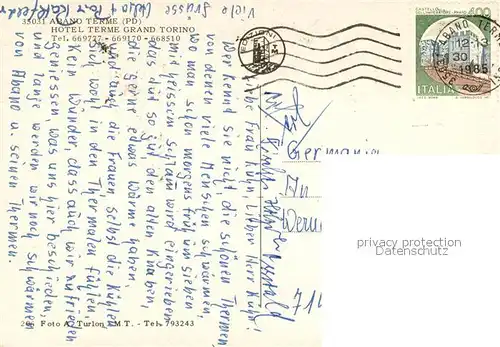 35031 ABANO TERME (PD)
HOTEL TERME GRAND TORINO
Tel. 669727 - 669170 - 668510
Viele
Grüsse
Liebe Frau Kühn, Lieber Herr Kühn!
Wer kennt sie nicht, die schönen Thermen
von denen viele Menschen schwärmen,
wo man schon morgens früh um sieben
mit heissem Schlamm wird eingerieben
das tut so gut den alten Knaben,
die gerne etwas Wärme haben,
während die Frauen, selbst die Kühlen
sich wohl in den Thermalen fühlen,
Kein Wunder, dass auch wir zufrieden
Geniessen was uns hier beschieden,
und lange werden wir noch schwärmen
von Abano u. seinen Thermen.
400
ABANO TERME
12-12
30
1985
ITALIA
EDIZIONI
Germania
An
Wern
714
privacy protection
Datenschutz
Foto A. Turlon I.M.T. - Tel. 793243